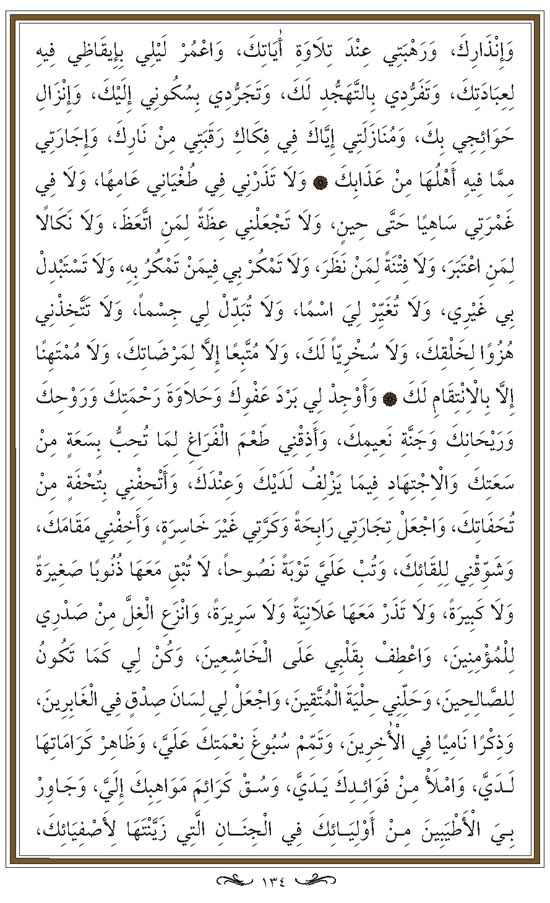 وَإِنْذَارِكَ، وَرَهْبَتِي عِنْدَ تِلَاوَةِ أٰيَاتِكَ، وَاعْمُرْ لَيْلِي بِإِيقَاظِي فِيهِ
لِعِبَادَتِكَ، وَتَفَرُّدِي بِالتَّهَجُّدِ لَكَ، وَتَجَرُّدِي بِسُكُونِي إِلَيْكَ، وَإِنْزَالِ
حَوَائِجِي بِكَ، وَمُنَازَلَتِي إِيَّاكَ فِي فِكَاكِ رَقَبَتِي مِنْ نَارِكَ، وَإِجَارَتِي
مِمَّا فِيهِ أَهْلُهَا مِنْ عَذَابِكَ ۞ وَلَا تَذَرْنِي فِي طُغْيَانِي عَامِهًا، وَلَا فِي
غَمْرَتِي سَاهِيًا حَتَّى حِينٍ، وَلَا تَجْعَلْنِي عِظَةً لِمَنِ اتَّعَظَ، وَلَا نَكَالًا
لِمَنِ اعْتَبَرَ، وَلَا فِتْنَةً لِمَنْ نَظَرَ، وَلَا تَمْكُرْ بِي فِيمَنْ تَمْكُرُ بِهِ، وَلَا تَسْتَبْدِلْ
بِي غَيْرِي، وَلَا تُغَيِّرْ لِيَ اسْمًا، وَلَا تُبَدِّلْ لِي جِسْماً، وَلَا تَتَّخِذْنِي
هُزُوًا لِخَلْقِكَ، وَلَا سُخْرِيّاً لَكَ، وَلَا مُتَّبِعًا إِلَّا لِمَرْضَاتِكَ، وَلَا مُمْتَهِنًا
إِلَّا بِالْاِنْتِقَامِ لَكَ ۞ وَأَوْجِدْ لِي بَرْدَ عَفْوِكَ وَحَلَاوَةَ رَحْمَتِكَ وَرَوْحِكَ
وَرَيْحَانِكَ وَجَنَّةِ نَعِيمِكَ، وَأَذِقْنِي طَعْمَ الْفَرَاغِ لِمَا تُحِبُّ بِسَعَةٍ مِنْ
سَعَتِكَ وَالْاِجْتِهَادِ فِيمَا يَزْلِفُ لَدَيْكَ وَعِنْدَكَ، وَأَتْحِفْنِي بِتُحْفَةٍ مِنْ
تُحَفَاتِكَ، وَاجْعَلْ تِجَارَتِي رَابِحَةً وَكَرَّتِي غَيْرَ خَاسِرَةٍ، وَأَخِفْنِي مَقَامَكَ،
وَشَوِّقْنِي لِلِقَائِكَ، وَتُبْ عَلَيَّ تَوْبَةً نَصُوحاً، لَا تُبْقِ مَعَهَا ذُنُوبًا صَغِيرَةً
وَلَا كَبِيرَةً، وَلَا تَذَرْ مَعَهَا عَلَانِيَةً وَلَا سَرِيرَةً، وَانْزَعِ الْغِلَّ مِنْ صَدْرِي
لِلْمُؤْمِنِينَ، وَاعْطِفْ بِقَلْبِي عَلَى الْخَاشِعِينَ، وَكُنْ لِي كَمَا تَكُونُ
لِلصَّالِحِينَ، وَحَلِّنِي حِلْيَةَ الْمُتَّقِينَ، وَاجْعَلْ لِي لِسَانَ صِدْقٍ فِي الْغَابِرِينَ،
وَذِكْرًا نَامِيًا فِي الْأٰخِرِينَ، وَتَمِّمْ سُبُوغَ نِعْمَتِكَ عَلَيَّ، وَظَاهِرْ كَرَامَاتِهَا
لَدَيَّ، وَامْلَأْ مِنْ فَوَائِدِكَ يَدَيَّ، وَسُقْ كَرَائِمَ مَوَاهِبِكَ إِلَيَّ، وَجَاوِرْ
بِيَ الْأَطْيَبِينَ مِنْ أَوْلِيَائِكَ فِي الْجِنَانِ الَّتِي زَيَّنْتَهَا لِأَصْفِيَائِكَ،
١٣٤